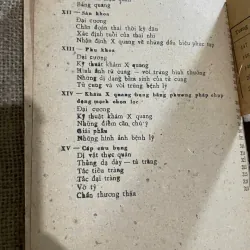 Bàng quang
XII — Sản khoa
Đại cương
Chẩn đoán thai thời kỳ đầu
Xác định tuổi của thai nhi
Nhận định X quang về chứng đầu hiểu phức tạp
XIII — Phụ khoa
Đại cương
Kỹ thuật khám X quang
Hình ảnh tử cung – vòi trứng bình thường
Những dị dạng bẩm sinh của tử cung
Tử cung và vòi trứng bệnh lý
XIV — Khám X quang trọng bằng phương pháp chụp
động mạch chọn lọc
Đại cương
Kỹ thuật khám X quang
Những điểm cần chú ý
Giải phẫu
Những hình ảnh bệnh lý
XV — Cấp cứu bụng
Dị vật thực quản
Thủng dạ dày — tá tràng
Tắc tiểu tràng
Tắc đại tràng
Vỡ tỳ
Chấn thương thận